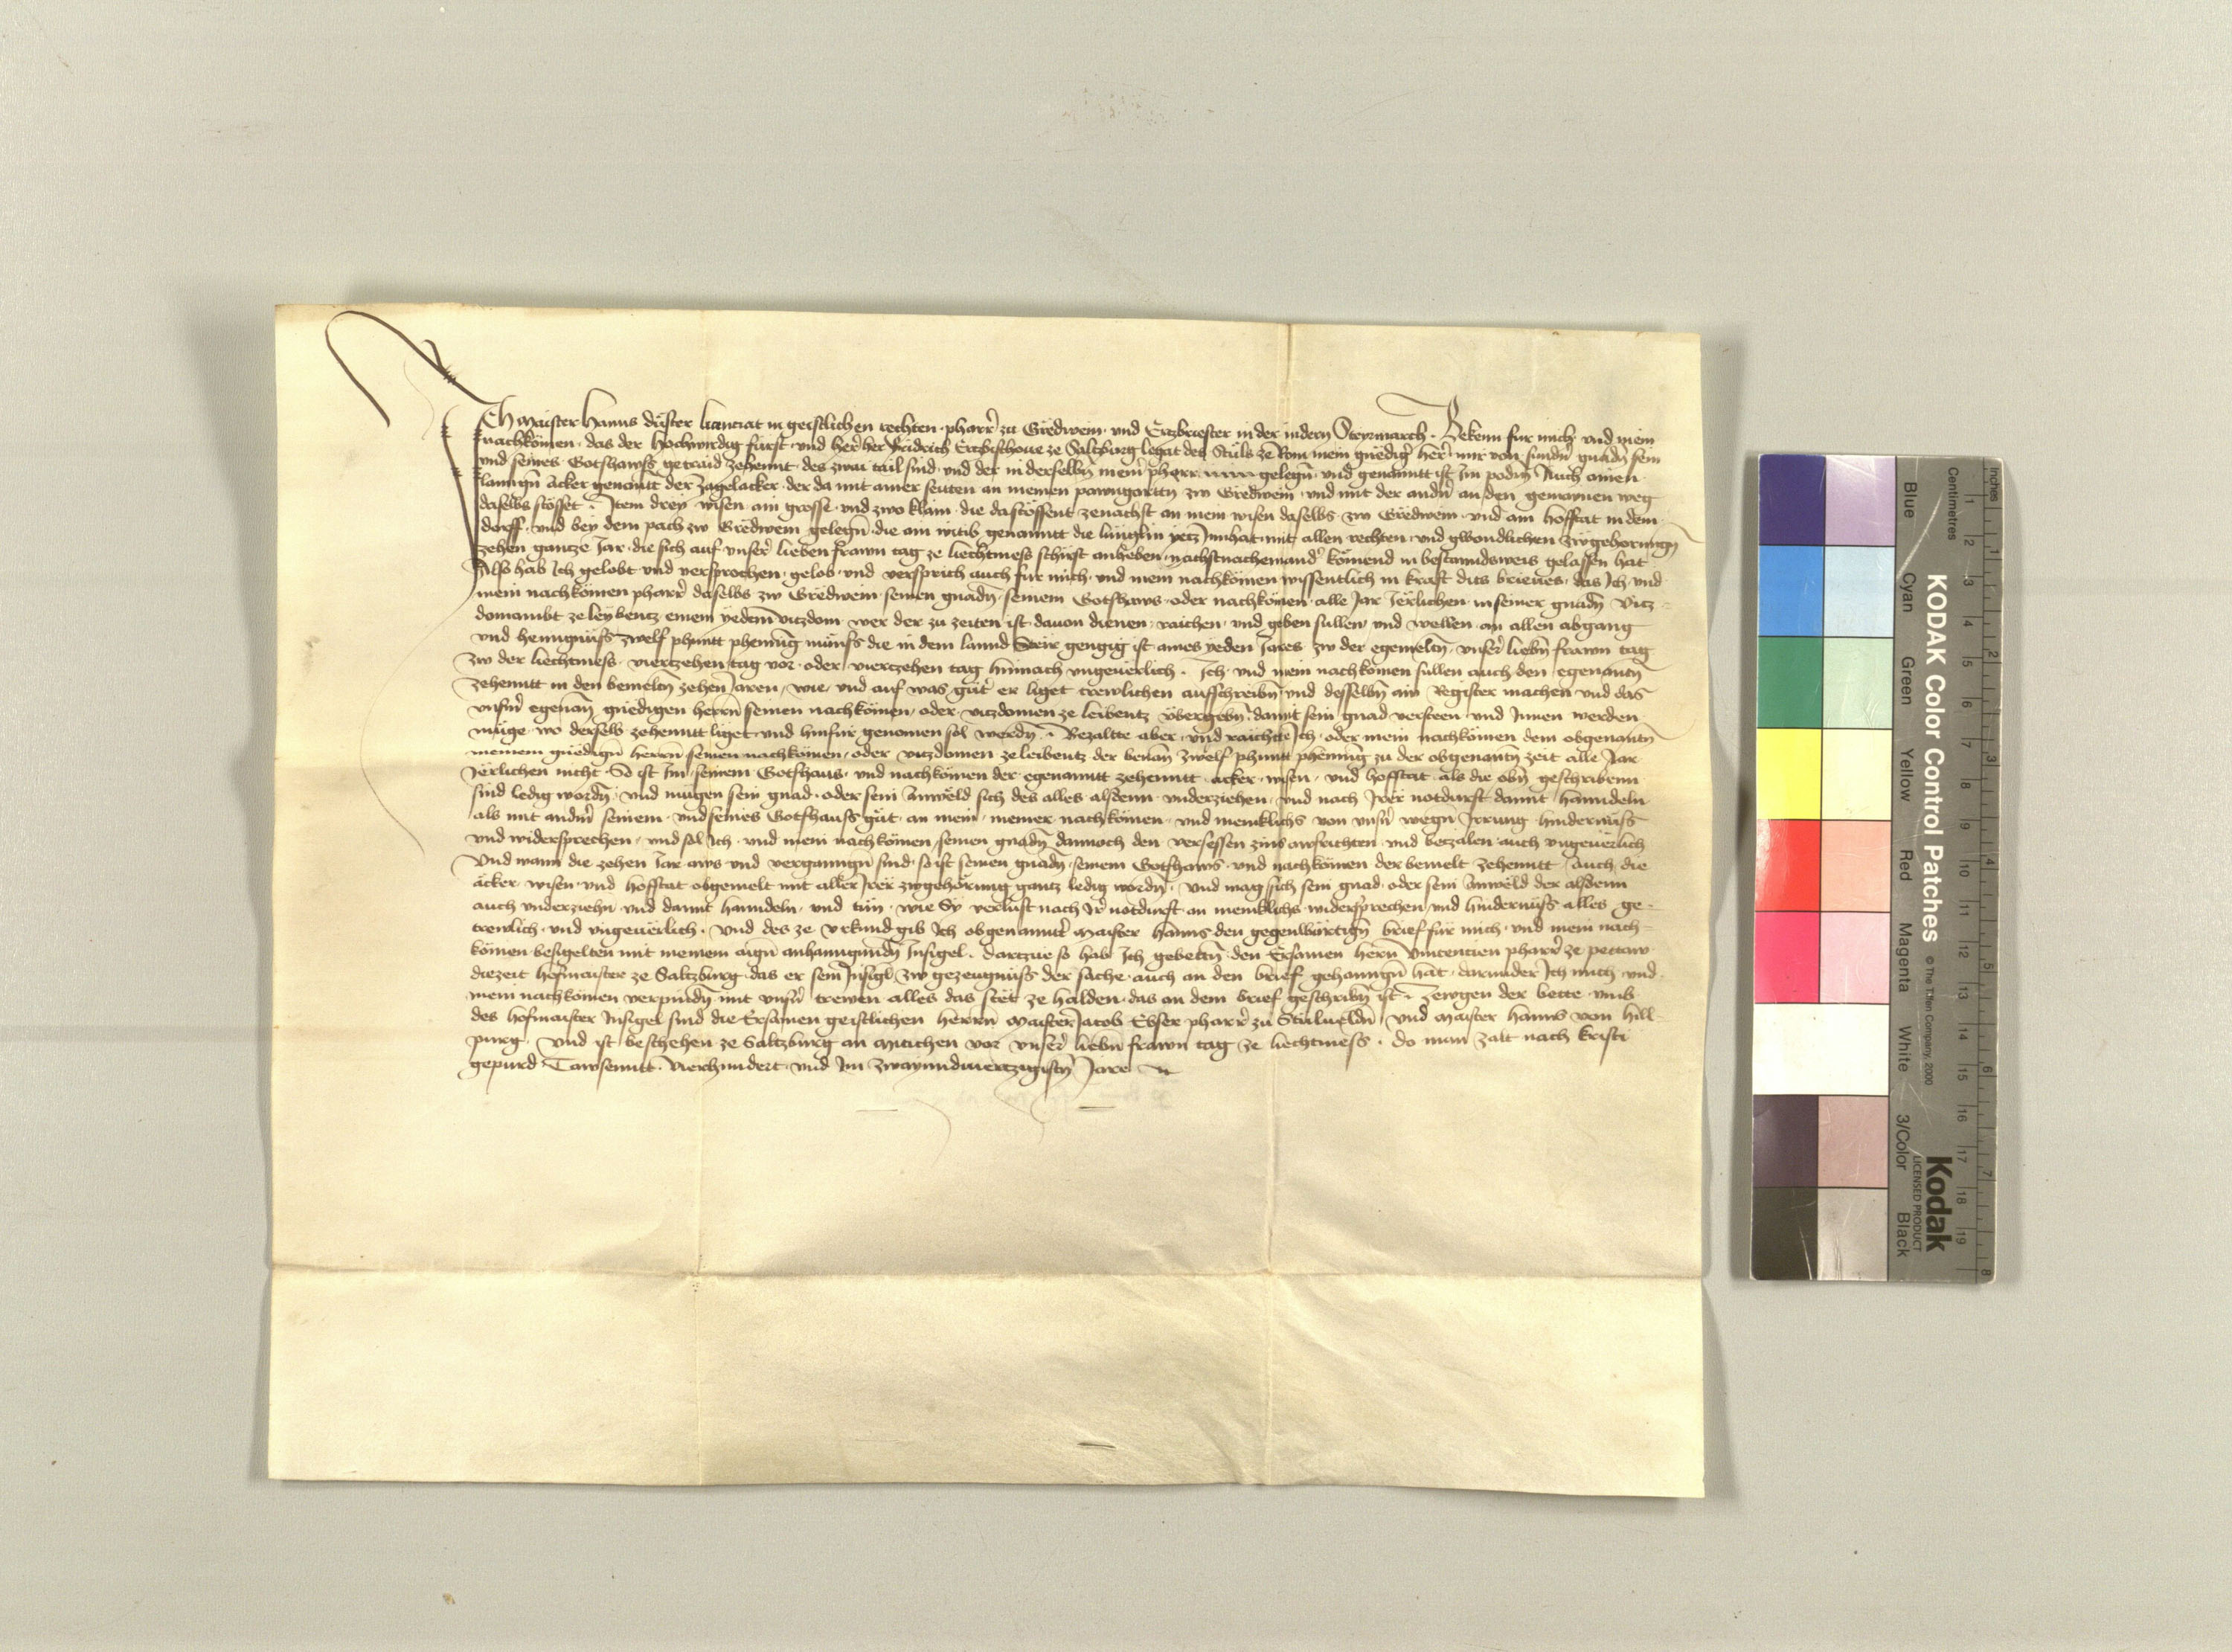 Ich Maister Hanns düster licenciat in geistlichen rechten · pharrer zu Gredwein · und Ertzbriester in der indern Steyrmarch · Bekenn fur mich · und mein
nachkömen · das der hochwirdig fürst · und herr her Fridrich Ertzbischoue ze Saltzburg legat des Stüls ze Rom mein gnedig' her' mir von sundn' gnadn sein
und seines Gotshawss getraid zehennt · des zwai tail sind · und der in derselbn mein' pharr gelegn · und genanntt ist Im podm Auch ainen
lanngn äcker genantt der Zagelacker · der da mit ainer seitten an meinen pawngartn zw Gredwein · und mit der andn' an den gemainen weg
daselbs stösset · Item drey wisen ain grosse · und zwo klain · die dastössent zenachst an mein wisen daselbs · zw Gredwein · und ain hofftat in dem
dorff · und bey dem pach zw Gredwein gelegn · die ain witib genanntt die yetz Innhat · mit allen rechten · und gwondlichen zwgehorungn
zehen gantze Jar · die sich auf unser' lieben frawn tag ze liechtmess schirst anheben · nachstnacheinand' kömend in bestanndsweis gelassen hat
Also hab Ich gelobt · und versprochen · gelob · und versprich auch fur mich · und mein nachkömen wissentlich in kraft dits brieues · das Ich · und
mein nachkömen pharr' daselbs zw Gredwein · seinen gnadn · seinem Gotshaws · oder nachkömen · alle Jar Jerlichen in seiner gnadn Vitz-
dombambt ze leybentz einem yedem vitzdom wer der zu zeiten ist · dauon dienen · raichen · und geben sullen und wellen · an allen abgang
und hennignüss zwelf phuntt phennig münss die in dem lannd Steir gengig ist aines yeden Jares zw der egemeltn · unser' liebn frawn tag
zw der liechtmess · viertzehen tag vor · oder viertzehen tag hinnach ungeuerlich · Ich · und mein nachkömen sullen auch den egenantn
zehenntt in den bemeltn zehen Jaren, wie · und auf was güt' er liget trewlichen aufschreibn und desselbn ain Register machen und das
unserm egenan gnedigen herrn seinen nachkömen, oder · vitzdomen ze leibentz übergebn · damit sein gnad versteen und Innen werden
müge · wo derselb zehenntt liget · und hinfür genomen sol werdn · Bezaltte aber · und raichtte Ich · oder mein nachkömen dem obgenantn
meinem gnedign herrn seinen nachkömen · oder vitzdomen ze leibentz der benan zwelf phuntt phennig zu der obgenantn zeit alle Jar
Jerlichen nicht · So ist Im · seinem Gotshaus · und nachkömen der egenanntt zehenntt · äcker · wisen · und hofftat · als die obn geschribenn
sind ledig wordn · und mügen sein gnad · oder sein Anweld sich des alles alsdenn · underziehen · und nach Irer notdurft damit hanndeln
als mit andrm seinem · und seines Gotshauss güt · an mein · meiner nachkömen · und meniklichs von unsn' wegn Irrung hindernüss
und widersprechen · und sol Ich · und mein nachkömen seinen gnadn dannoch den versessen zins awsrichten · und betzalen auch ungeuerlich
Und wann die zehen Jar aws und vergangn sind · so ist seinen gnadn · seinem Gotshaws · und nachkömen der bemelt zehenntt · Auch die
äcker · wisen · und hofftat obgemelt mit aller Irer zwgehörung gantz ledig wordn · Und mag sich sein gnad · oder sein Anweld der alsdenn
auch underziehn · und damit hanndeln · und tün · wie Sy verlust nach Ir' notdurft an meniklichs widersprechen und hindernüss alles ge-
trewlich · und ungeuerlich · Und des ze Vrkund gib Ich obgenannt' Maister hanns den gegenwürtign brief für mich · und mein nach-
kömen besigelten mit meinem aign anhanngundn Insigel · dartzue so hab Ich gebettn den Ersamen herrn Vincencien pharr' ze pettaw
diezeit hofmaister ze Saltzburg · das er sein Insigl zw gezeugnüss der sache · auch an den brief gehanngn hat · darunder Ich mich · und
mein nachkömen verpindn mit unsn' trewen alles das stet ze halden · das an dem brief geschribn ist · Zewgen der bette umb
des hofmaister Insigel sind die Ersamen geistlichen herrn Maister Jacob Ebser pharr' zu Stulueldn · und Maister hanns von hill-
purg · Und ist beschehen ze Saltzburg an Mitichen vor unser' liebn frawn tag ze liechtmess · do man zalt nach kristi
gepurd Tawsenntt · vierhundert · und Im zwayundviertzigistn Jare
KODAK Color Control Patches © The Tiffen Company, 2000
Kodak
LICENSED PRODUCT
Blue Cyan Green Yellow Red Magenta White 3/Color Black
Inches 1 2 3 4 5 6 7 8
Centimetres 1 2 3 4 5 6 7 8 9 10 11 12 13 14 15 16 17 18 19